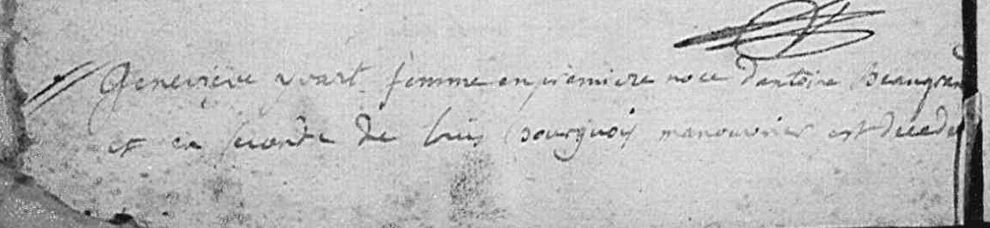 Geneviève yvart femme en premiere noce d'antoine Beaugrand
et en seconde de louis Bourgeois manouvrier est decedé